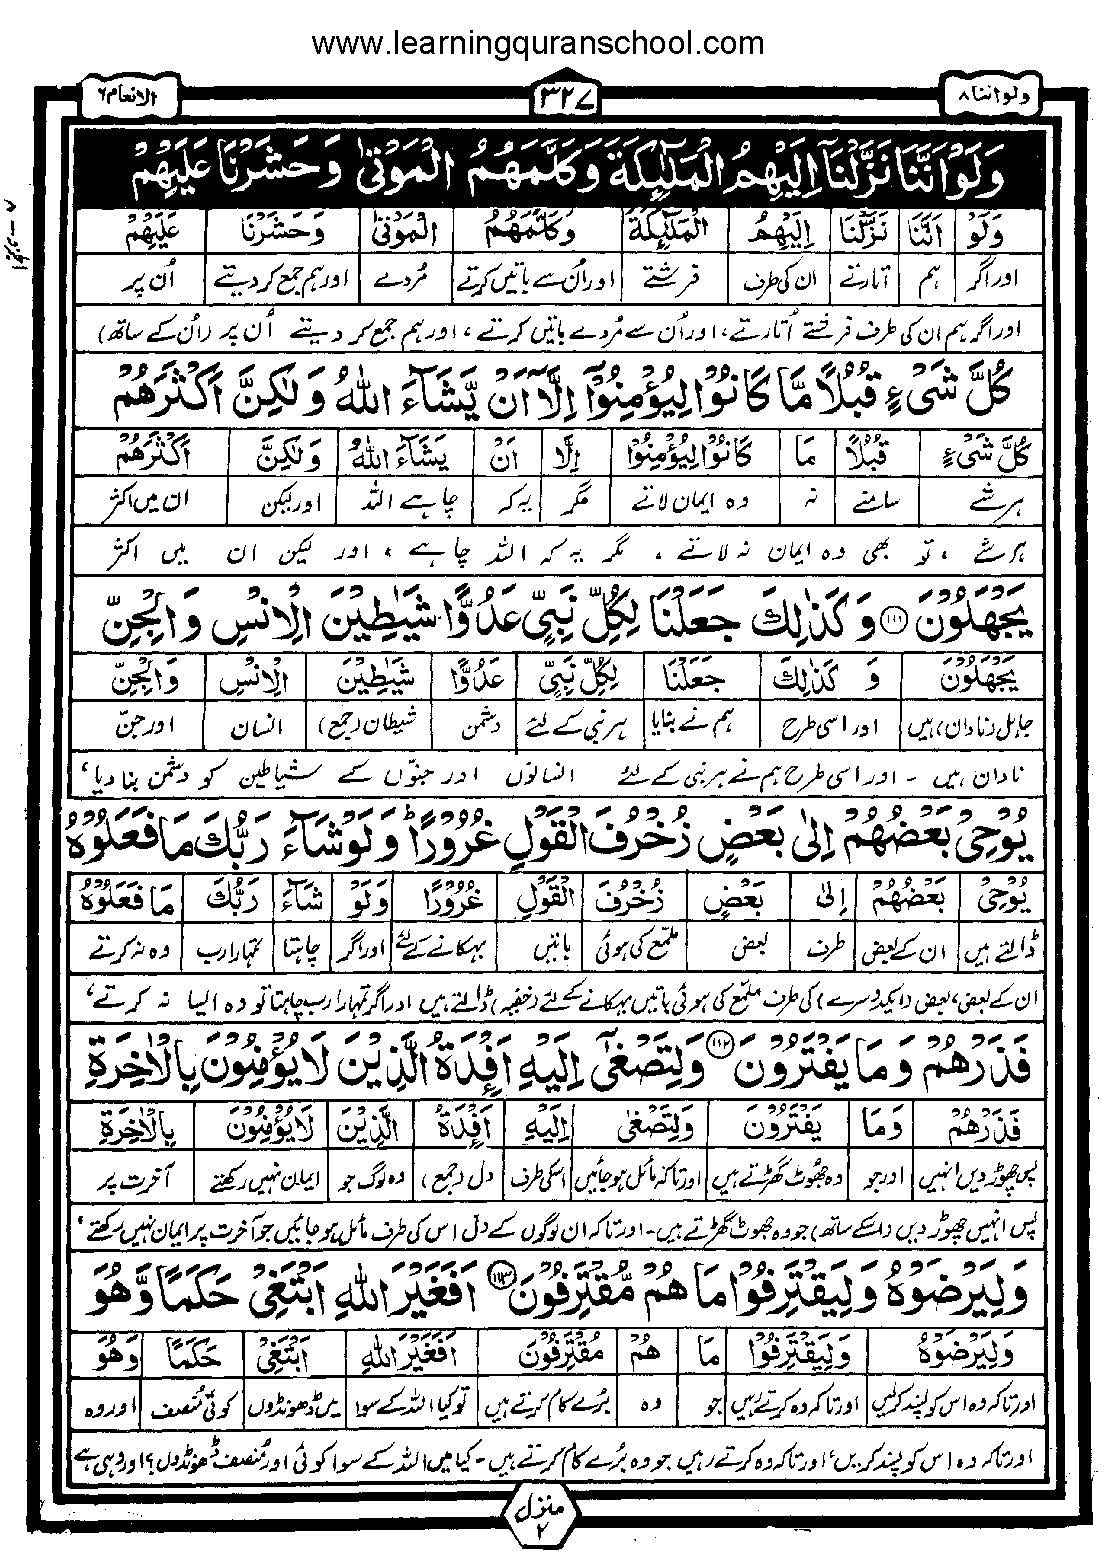 www.learningquranschool.com
ولواننا ۸
۳۲۷
الانعام ۶
وَلَوْ اَنَّنَا نَزَّلْنَآ اِلَيْهِمُ الْمَلٰٓئِكَةَ وَكَلَّمَهُمُ الْمَوْتٰى وَحَشَرْنَا عَلَيْهِمْ
وَلَوْ اَنَّنَا نَزَّلْنَا اِلَيْهِمُ الْمَلٰٓئِكَةَ وَكَلَّمَهُمُ الْمَوْتٰى وَحَشَرْنَا عَلَيْهِمْ
اور اگر ہم اتارتے ان کی طرف فرشتے اور اُن سے باتیں کرتے مُردے اور ہم جمع کر دیتے اُن پر
اور اگر ہم ان کی طرف فرشتے اُتارتے، اور اُن سے مُردے باتیں کرتے، اور ہم جمع کر دیتے اُن پر (اُن کے ساتھ)
كُلَّ شَىْءٍ قُبُلًا مَّا كَانُوْا لِيُؤْمِنُوْٓا اِلَّآ اَنْ يَّشَآءَ اللّٰهُ وَلٰكِنَّ اَكْثَرَهُمْ
كُلَّ شَىْءٍ قُبُلًا مَا كَانُوْا لِيُؤْمِنُوْا اِلَّا اَنْ يَشَآءَ اللّٰهُ وَلٰكِنَّ اَكْثَرَهُمْ
ہر شے سامنے نہ وہ ایمان لاتے مگر یہ کہ چاہے اللہ اور لیکن ان میں اکثر
ہر شے، تو بھی وہ ایمان نہ لاتے، مگر یہ کہ اللہ چاہے، اور لیکن ان میں اکثر
يَجْهَلُوْنَ ۝۱۱۱ وَكَذٰلِكَ جَعَلْنَا لِكُلِّ نَبِىٍّ عَدُوًّا شَيٰطِيْنَ الْاِنْسِ وَالْجِنِّ
يَجْهَلُوْنَ وَ كَذٰلِكَ جَعَلْنَا لِكُلِّ نَبِىٍّ عَدُوًّا شَيٰطِيْنَ الْاِنْسِ وَالْجِنِّ
جاہل (نادان) ہیں اور اسی طرح ہم نے بنایا ہر نبی کے لئے دشمن شیطان (جمع) انسان اور جنّ
نادان ہیں ۔ اور اسی طرح ہم نے ہر نبی کے لئے انسانوں اور جنّوں کے شیاطین کو دشمن بنا دیا،
يُوْحِىْ بَعْضُهُمْ اِلٰى بَعْضٍ زُخْرُفَ الْقَوْلِ غُرُوْرًا ؕ وَلَوْ شَآءَ رَبُّكَ مَا فَعَلُوْهُ
يُوْحِىْ بَعْضُهُمْ اِلٰى بَعْضٍ زُخْرُفَ الْقَوْلِ غُرُوْرًا وَلَوْ شَآءَ رَبُّكَ مَا فَعَلُوْهُ
ڈالتے ہیں ان کے بعض طرف بعض ملمّع کی ہوئی باتیں بہکانے کے لئے اور اگر چاہتا تمہارا رب وہ نہ کرتے
ان کے بعض، بعض (ایکدوسرے) کی طرف ملمّع کی ہوئی باتیں بہکانے کے لئے (خفیہ) ڈالتے ہیں اور اگر تمہارا رب چاہتا تو وہ ایسا نہ کرتے،
فَذَرْهُمْ وَمَا يَفْتَرُوْنَ ۝۱۱۲ وَلِتَصْغٰٓى اِلَيْهِ اَفْـِٕدَةُ الَّذِيْنَ لَا يُؤْمِنُوْنَ بِالْاٰخِرَةِ
فَذَرْهُمْ وَمَا يَفْتَرُوْنَ وَلِتَصْغٰى اِلَيْهِ اَفْـِٕدَةُ الَّذِيْنَ لَا يُؤْمِنُوْنَ بِالْاٰخِرَةِ
پس چھوڑ دیں انہیں اور جو وہ جھُوٹ گھڑتے ہیں اور تاکہ مائل ہو جائیں اسکی طرف دل (جمع) وہ لوگ جو ایمان نہیں رکھتے آخرت پر
پس انہیں چھوڑ دیں (اسکے ساتھ) جو وہ جھوٹ گھڑتے ہیں ۔ اور تاکہ ان لوگوں کے دل اس کی طرف مائل ہو جائیں جو آخرت پر ایمان نہیں رکھتے،
وَلِيَرْضَوْهُ وَلِيَقْتَرِفُوْا مَا هُمْ مُّقْتَرِفُوْنَ ۝۱۱۳ اَفَغَيْرَ اللّٰهِ اَبْتَغِىْ حَكَمًا وَّهُوَ
وَلِيَرْضَوْهُ وَلِيَقْتَرِفُوْا مَا هُمْ مُقْتَرِفُوْنَ اَفَغَيْرَ اللّٰهِ اَبْتَغِىْ حَكَمًا وَّهُوَ
اور تاکہ وہ اس کو پسند کر لیں اور تاکہ وہ کرتے رہیں جو وہ بُرے کام کرتے ہیں تو کیا اللہ کے سوا میں ڈھونڈوں کوئی مُنصف اور وہ
اور تاکہ وہ اس کو پسند کریں، اور تاکہ وہ کرتے رہیں جو وہ بُرے کام کرتے ہیں ۔ کیا میں اللہ کے سوا کوئی اور مُنصف ڈھونڈوں؟ اور وہی ہے
منزل ۲